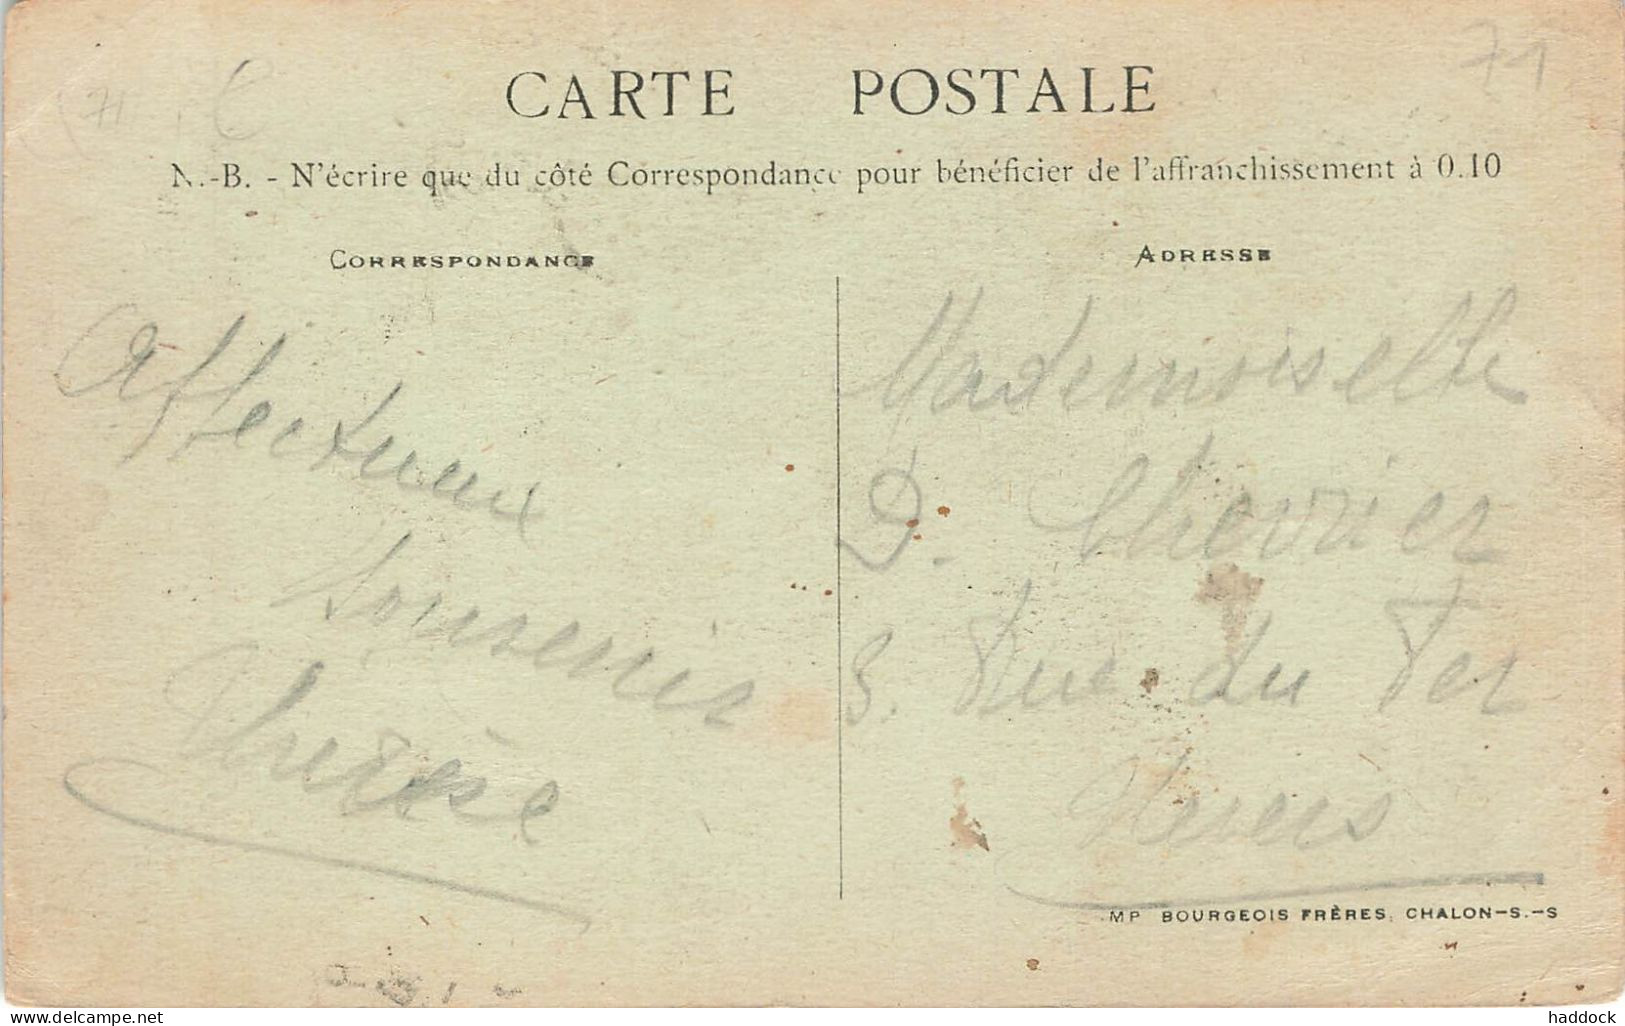 71
71 €
CARTE POSTALE
N.-B. - N'écrire que du côté Correspondance pour bénéficier de l'affranchissement à 0.10
CORRESPONDANCE
Affectueux
Souvenir
Thérèse
ADRESSE
Mademoiselle
D. Chevrier
8. Rue du Fer
IMP BOURGEOIS FRÈRES, CHALON-S.-S
delcampe.net
haddock